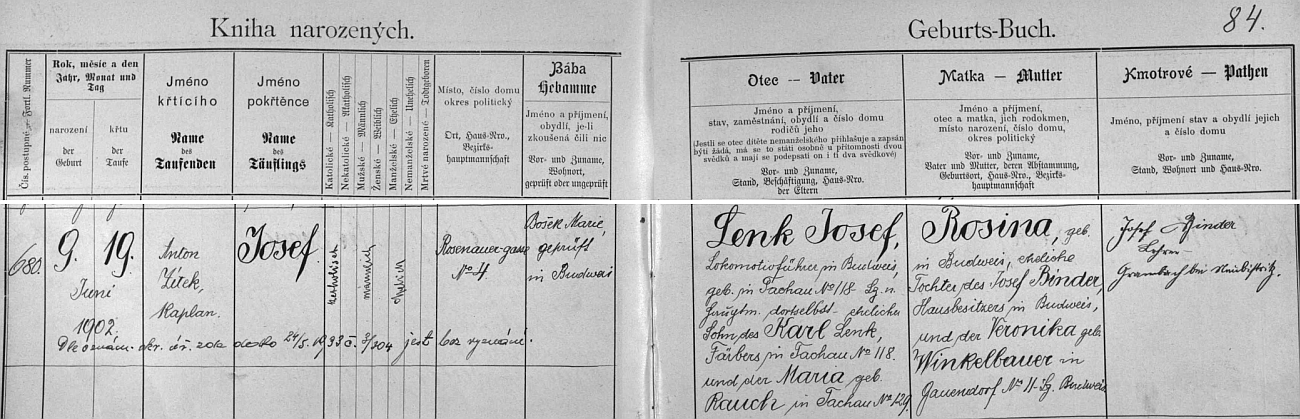 Kniha narozených.
Geburts-Buch.
84.
Čís. postupné — Fortl. Nummer
Rok, měsíc a den
Jahr, Monat und
Tag
narození
der
Geburt
křtu
der
Taufe
Jméno
křtícího
Name
des
Taufenden
Jméno
pokřtěnce
Name
des
Täuflings
Katolické — Katholisch
Nekatolické — Akatholisch
Mužské — Männlich
Ženské — Weiblich
Manželské — Ehelich
Nemanželské — Unehelich
Mrtvé narozené — Todtgeboren
Místo, číslo domu
okres politický
Ort, Haus-Nro.,
Bezirks-
hauptmannschaft
Bába
Hebamme
Jméno a příjmení,
obydlí, je-li
zkoušená čili nic
Vor- und Zuname,
Wohnort,
geprüft oder ungeprüft
Otec — Vater
Jméno a příjmení,
stav, zaměstnání, obydlí a číslo domu
rodičů jeho
(Jestli se otec dítěte nemanželského přihlašuje a zapsán
býti žádá, má se to státi osobně u přítomnosti dvou
svědků a mají se podepsati on i ti dva svědkové)
Vor- und Zuname,
Stand, Beschäftigung, Haus-Nro.
der Eltern
Matka — Mutter
Jméno a příjmení,
otec a matka, jich rodokmen,
místo narození, číslo domu,
okres politický
Vor- und Zuname,
Vater und Mutter, deren Abstammung,
Geburtsort, Haus-Nro., Bezirks-
hauptmannschaft
Kmotrové — Pathen
Jméno, příjmení stav a obydlí jejich
a číslo domu
Vor- und Zuname,
Stand, Wohnort und Haus-Nro.
680.
9.
Juni
1902.
19.
Anton
Zítek,
Kaplan.
Josef.
katholisch
männlich
ehelich
Rosenauer-gasse
No 4
Bošek Marie,
geprüft
in Budweis
Dle oznám. okr. úř. zde
24/5. 1933
jest bez vyznání.
Lenk Josef,
Lokomotivführer in Budweis,
geb. in Tachau No 118 Bz. u.
Hauptm. dortselbst ehelicher
Sohn des Karl Lenk,
Färbers in Tachau No 118.
und der Maria geb.
Rauch in Tachau No 129.
Rosina, geb.
in Budweis, eheliche
Tochter des Josef Binder,
Hausbesitzers in Budweis,
und der Veronika geb.
Winkelbauer in
Gauendorf No 11 Bz. Budweis
Josef Binder
Lehrer
Grambach bei Neubistritz.